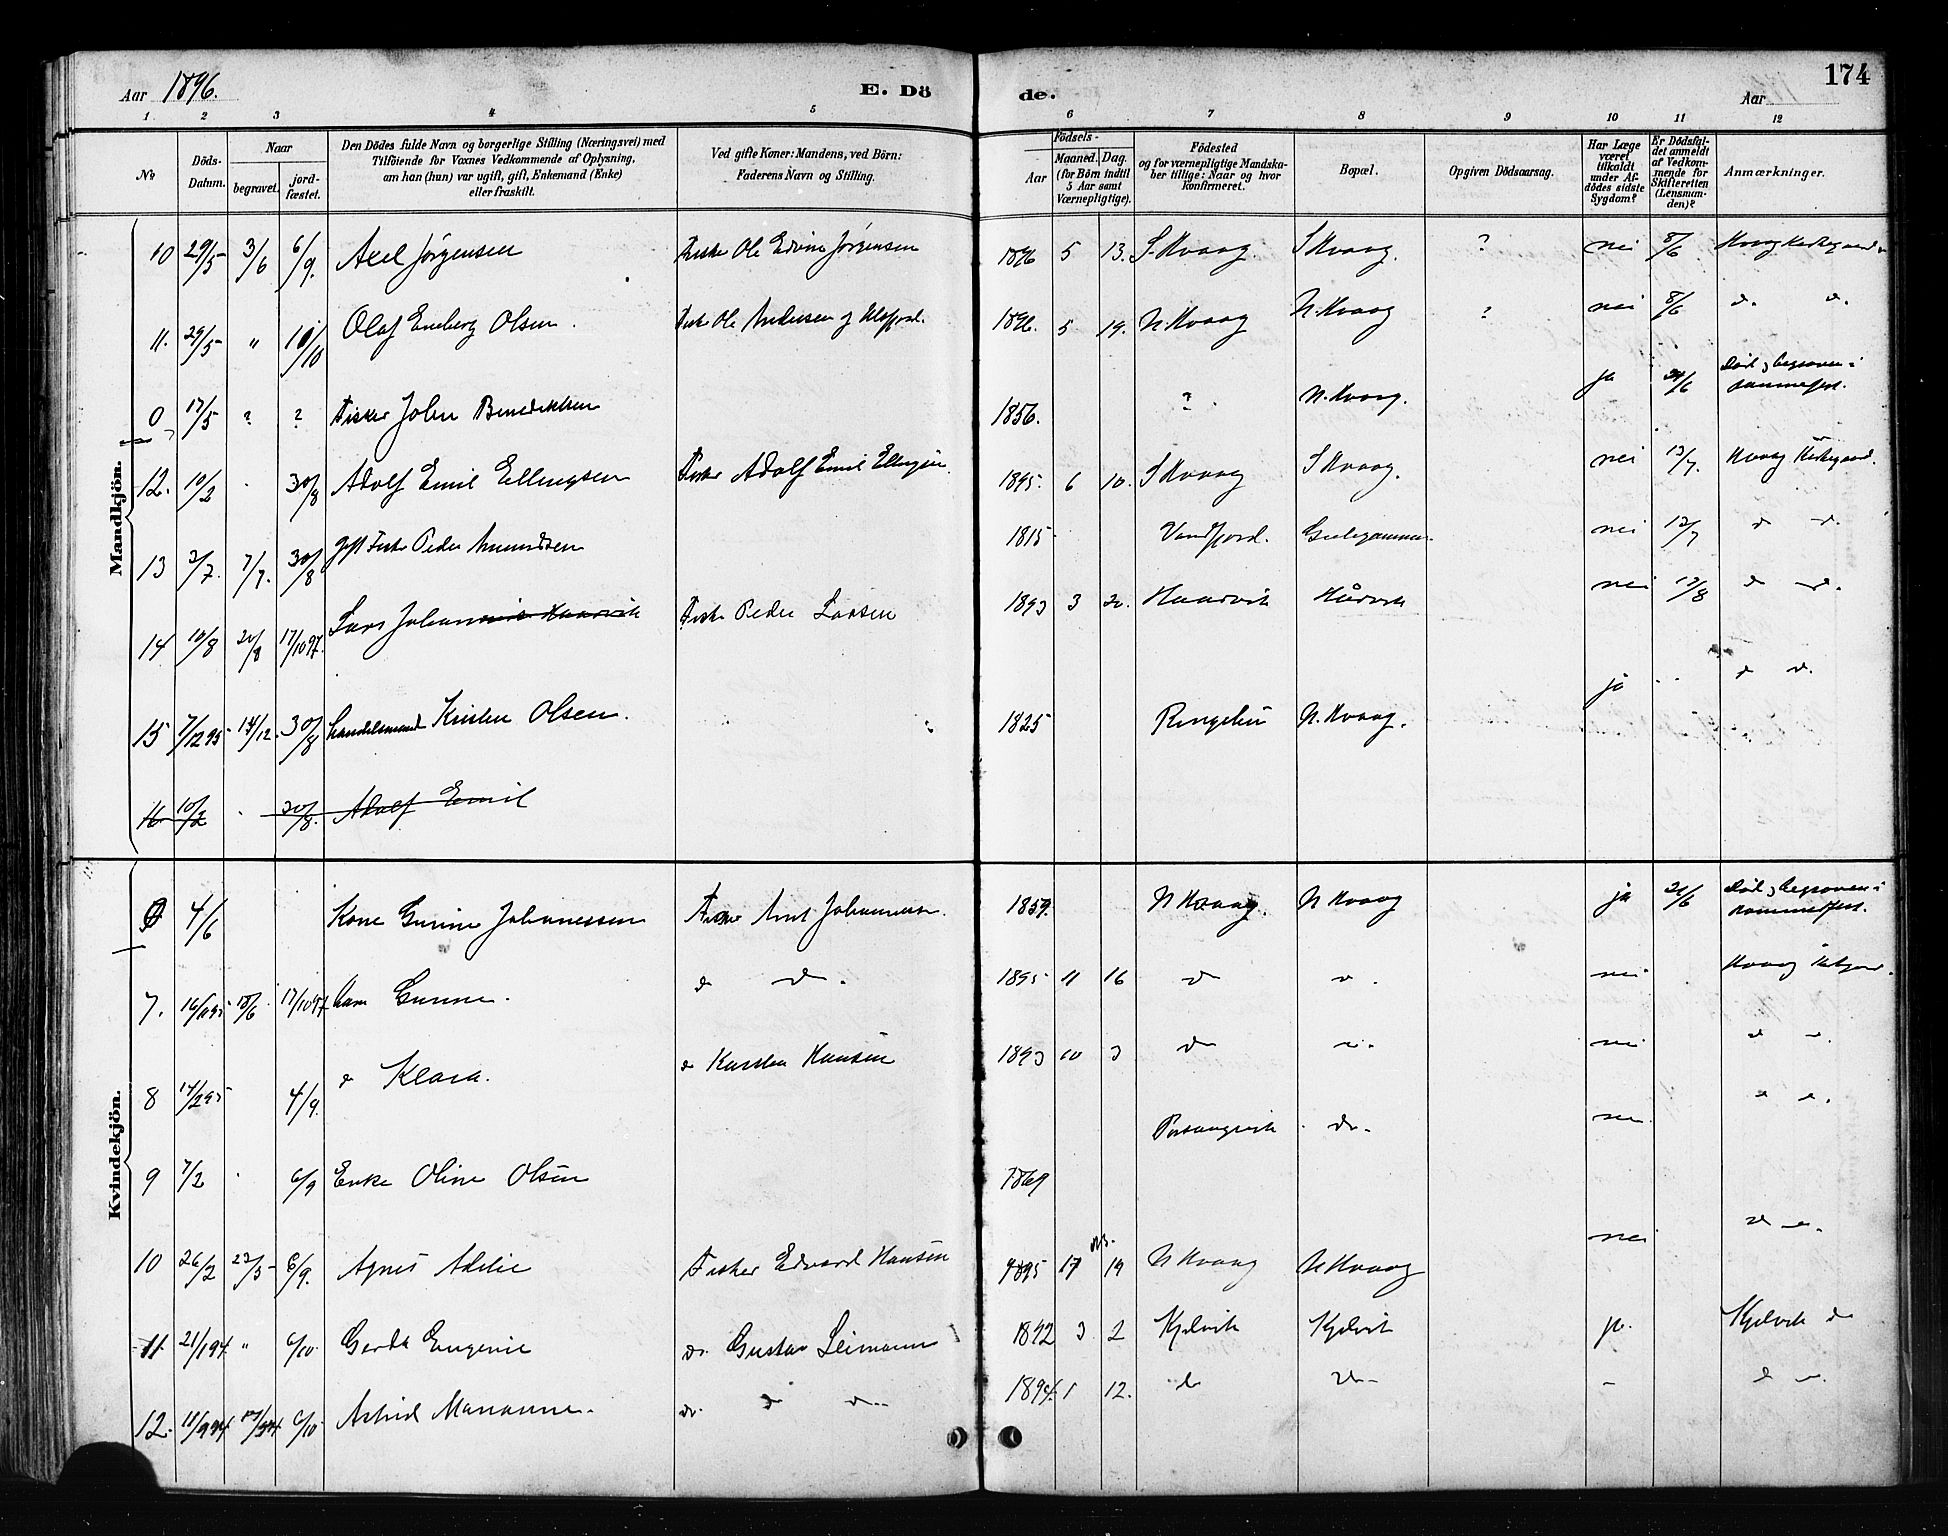 Aar 1896.
E. Dö
de.
Aar
174
1. 2 3 4 5 6 7 8 9 10 11 12
No
Döds-Datum.
Naar
begravet.
jordfæstet.
Den Dödes fulde Navn og borgerlige Stilling (Næringsvei) med
Tilföiende for Voxnes Vedkommende af Oplysning,
om han (hun) var ugift, gift, Enkemand (Enke)
eller fraskilt.
Ved gifte Koner: Mandens, ved Börn:
Faderens Navn og Stilling.
Födsels-
Aar
Maaned. Dag.
(for Börn indtil
5 Aar samt
Værnepligtige).
Födested
og for værnepligtige Mandska-
ber tillige: Naar og hvor
konfirmeret.
Bopæl.
Opgiven Dödsaarsag.
Har Læge
været
tilkaldt
under Af-
dödes sidste
Sygdom?
Er Dödsfal-
det anmeldt
af Vedkom-
mende for
Skifteretten
(Lensman-
den)?
Anmærkninger.
Mandkjön.
10 29/5 3/6 6/9. Axel Jörgensen Fisker Ole Edvin Jörgensen 1896 5 13. S. Kvaag. S Kvaag. ? nei 8/6 Kvaag Kirkegaard.
11. 29/5 " 10/10 Olaf Eneberg Olsen. Fisker Ole Andersen 1896. 5 19. N. Kvaag N. Kvaag ? nei 8/6 d. d.
0 17/5 ? ? Fisker John Benediktsen 1856. ? N. Kvaag. ja 24/6 Död og begraven i Hammerfest.
12. 10/2 30/8 Adolf Emil Ellingsen Fisker Adolf Emil Ellingsen. 1895. 6 10. S Kvaag S Kvaag. nei 13/7. Kvaag Kirkegaard.
13 2/7. 7/7. 30/8 Gift Fisker Peder Amundsen 1815 nei 13/7 d d.
14 10/8 20/8 17/10 97. Lars Johan Fisker Peder Larsen 1893 3 20. Haarvik Hårvik nei 13/8 d d.
15 7/12 95 14/12 30/8 Handelsmand Kristen Olsen. 1825 Ringebu N. Kvaag. ja d d.
16 10/2 30/8. Adolf Emil
Kvindekjön.
0 4/6 Kone Gurine Johanessen Fisker Arnt Johannesen. 1859. N Kvaag. N Kvaag ja 24/6 Död og begraven i Hammerfest.
7. 18/6 17/10 97. Barn Gurine. d d. 1895 11 16 d d. nei Kvaag
8 17/2 95 4/9. d Klara. d Karsten Hansen 1893 10 3 d nei d d.
9 7/2 6/9 Enke Oline Olsen 1869 Porsangvik do. nei d d.
10 26/2 6/9. Agnes Adelie Fisker Edvard Hansen 1895 17 19 N Kvaag N Kvaag nei d d.
11. 21/1 94. " 6/10. Gerda Eugenie do. Gustav Leimann 1892 3 2 Kjelvik Kjelvik ja. Kjelvik d
12. 6/10 Astrid Marianne. do. d d. 1894. 1 12. d d - d